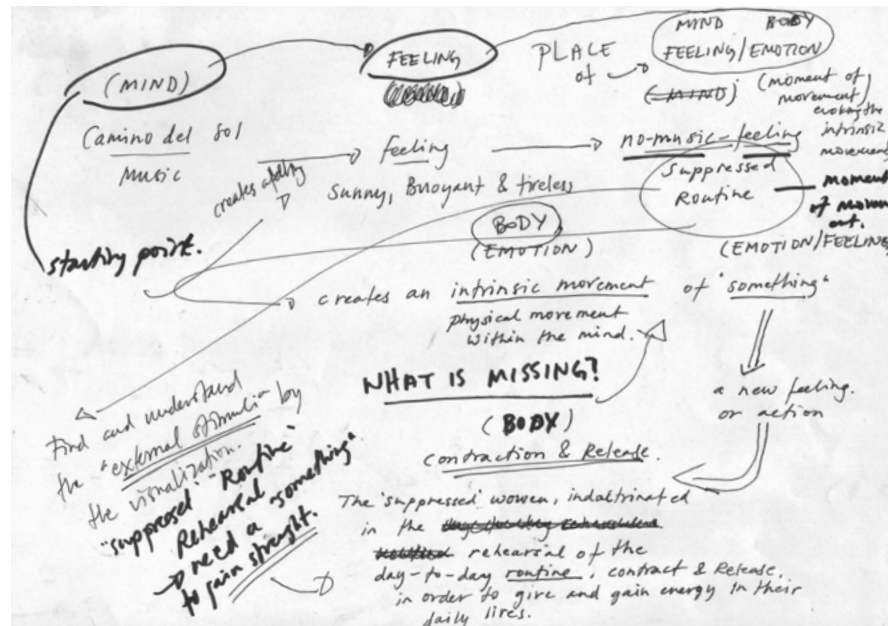 (MIND)
FEELING
PLACE
of
MIND BODY
FEELING/EMOTION
(MIND)
(moment of
movement)
evoking the
intrinsic
movement
Camino del Sol
Music
creates a feeling
feeling
Sunny, Buoyant & tireless
no-music-feeling
suppressed
Routine
moment
of movem
ent.
(EMOTION/FEELING)
starting point.
BODY
(EMOTION)
creates an intrinsic movement of "something"
physical movement
within the mind.
WHAT IS MISSING?
(BODY)
contraction & Release.
a new feeling.
or action
Find and understand
the "external stimuli" by
the visualization.
"suppressed" "Routine"
Rehearsal
need a "something"
to gain strenght.
The 'suppressed' women, indoltrinated
in the
rehearsal of the
day-to-day routine, contract & Release,
in order to give and gain energy in their
daily lives.